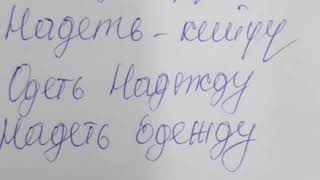 Надеть - кейду
Одеть Надежду
Надеть Одежду